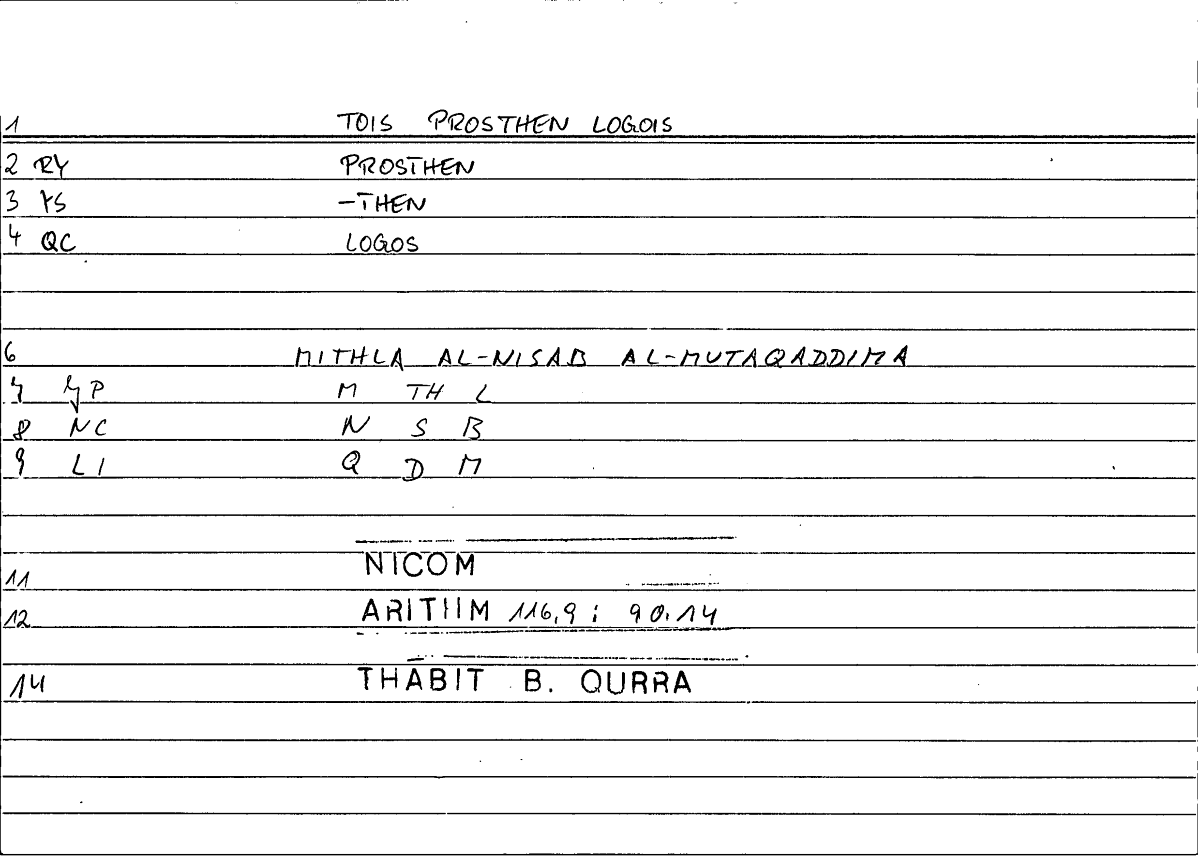 1 TOIS PROSTHEN LOGOIS
2 RY PROSTHEN
3 YS -THEN
4 QC LOGOS
6 MITHLA AL-NISAB AL-MUTAQADDIMA
7 P M TH L
8 NC N S B
9 LI Q D M
NICOM
11
12 ARITHM 116,9 ; 90.14
14 THĀBIT B. QURRA